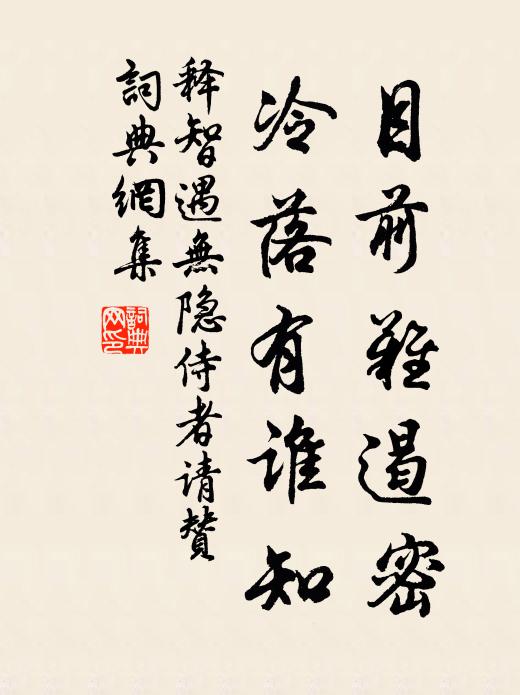 目前难遏密
冷落有谁知
释智遇無隐侍者请赞
詞典網集
詞典
网印